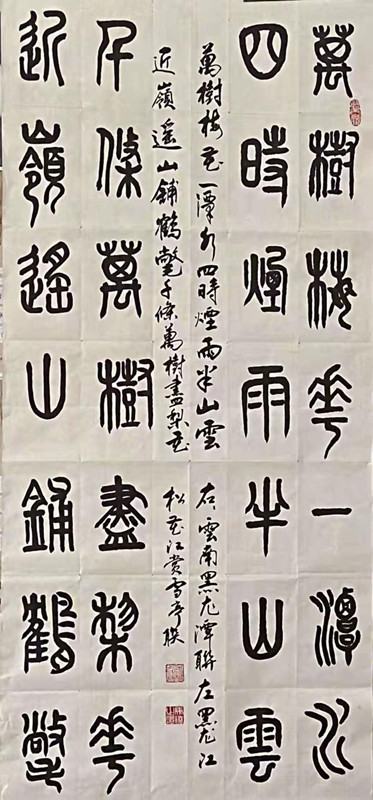 萬樹梅花一潭水
四時煙雨半山雲
萬樹梅花一潭水四時煙雨半山雲
右雲南黑龙潭聯左黑龙江
近嶺遥山鋪鶴氅千條萬樹盡梨花
松花江賞雪亭聯
千條萬樹盡梨花
近嶺遙山鋪鶴氅